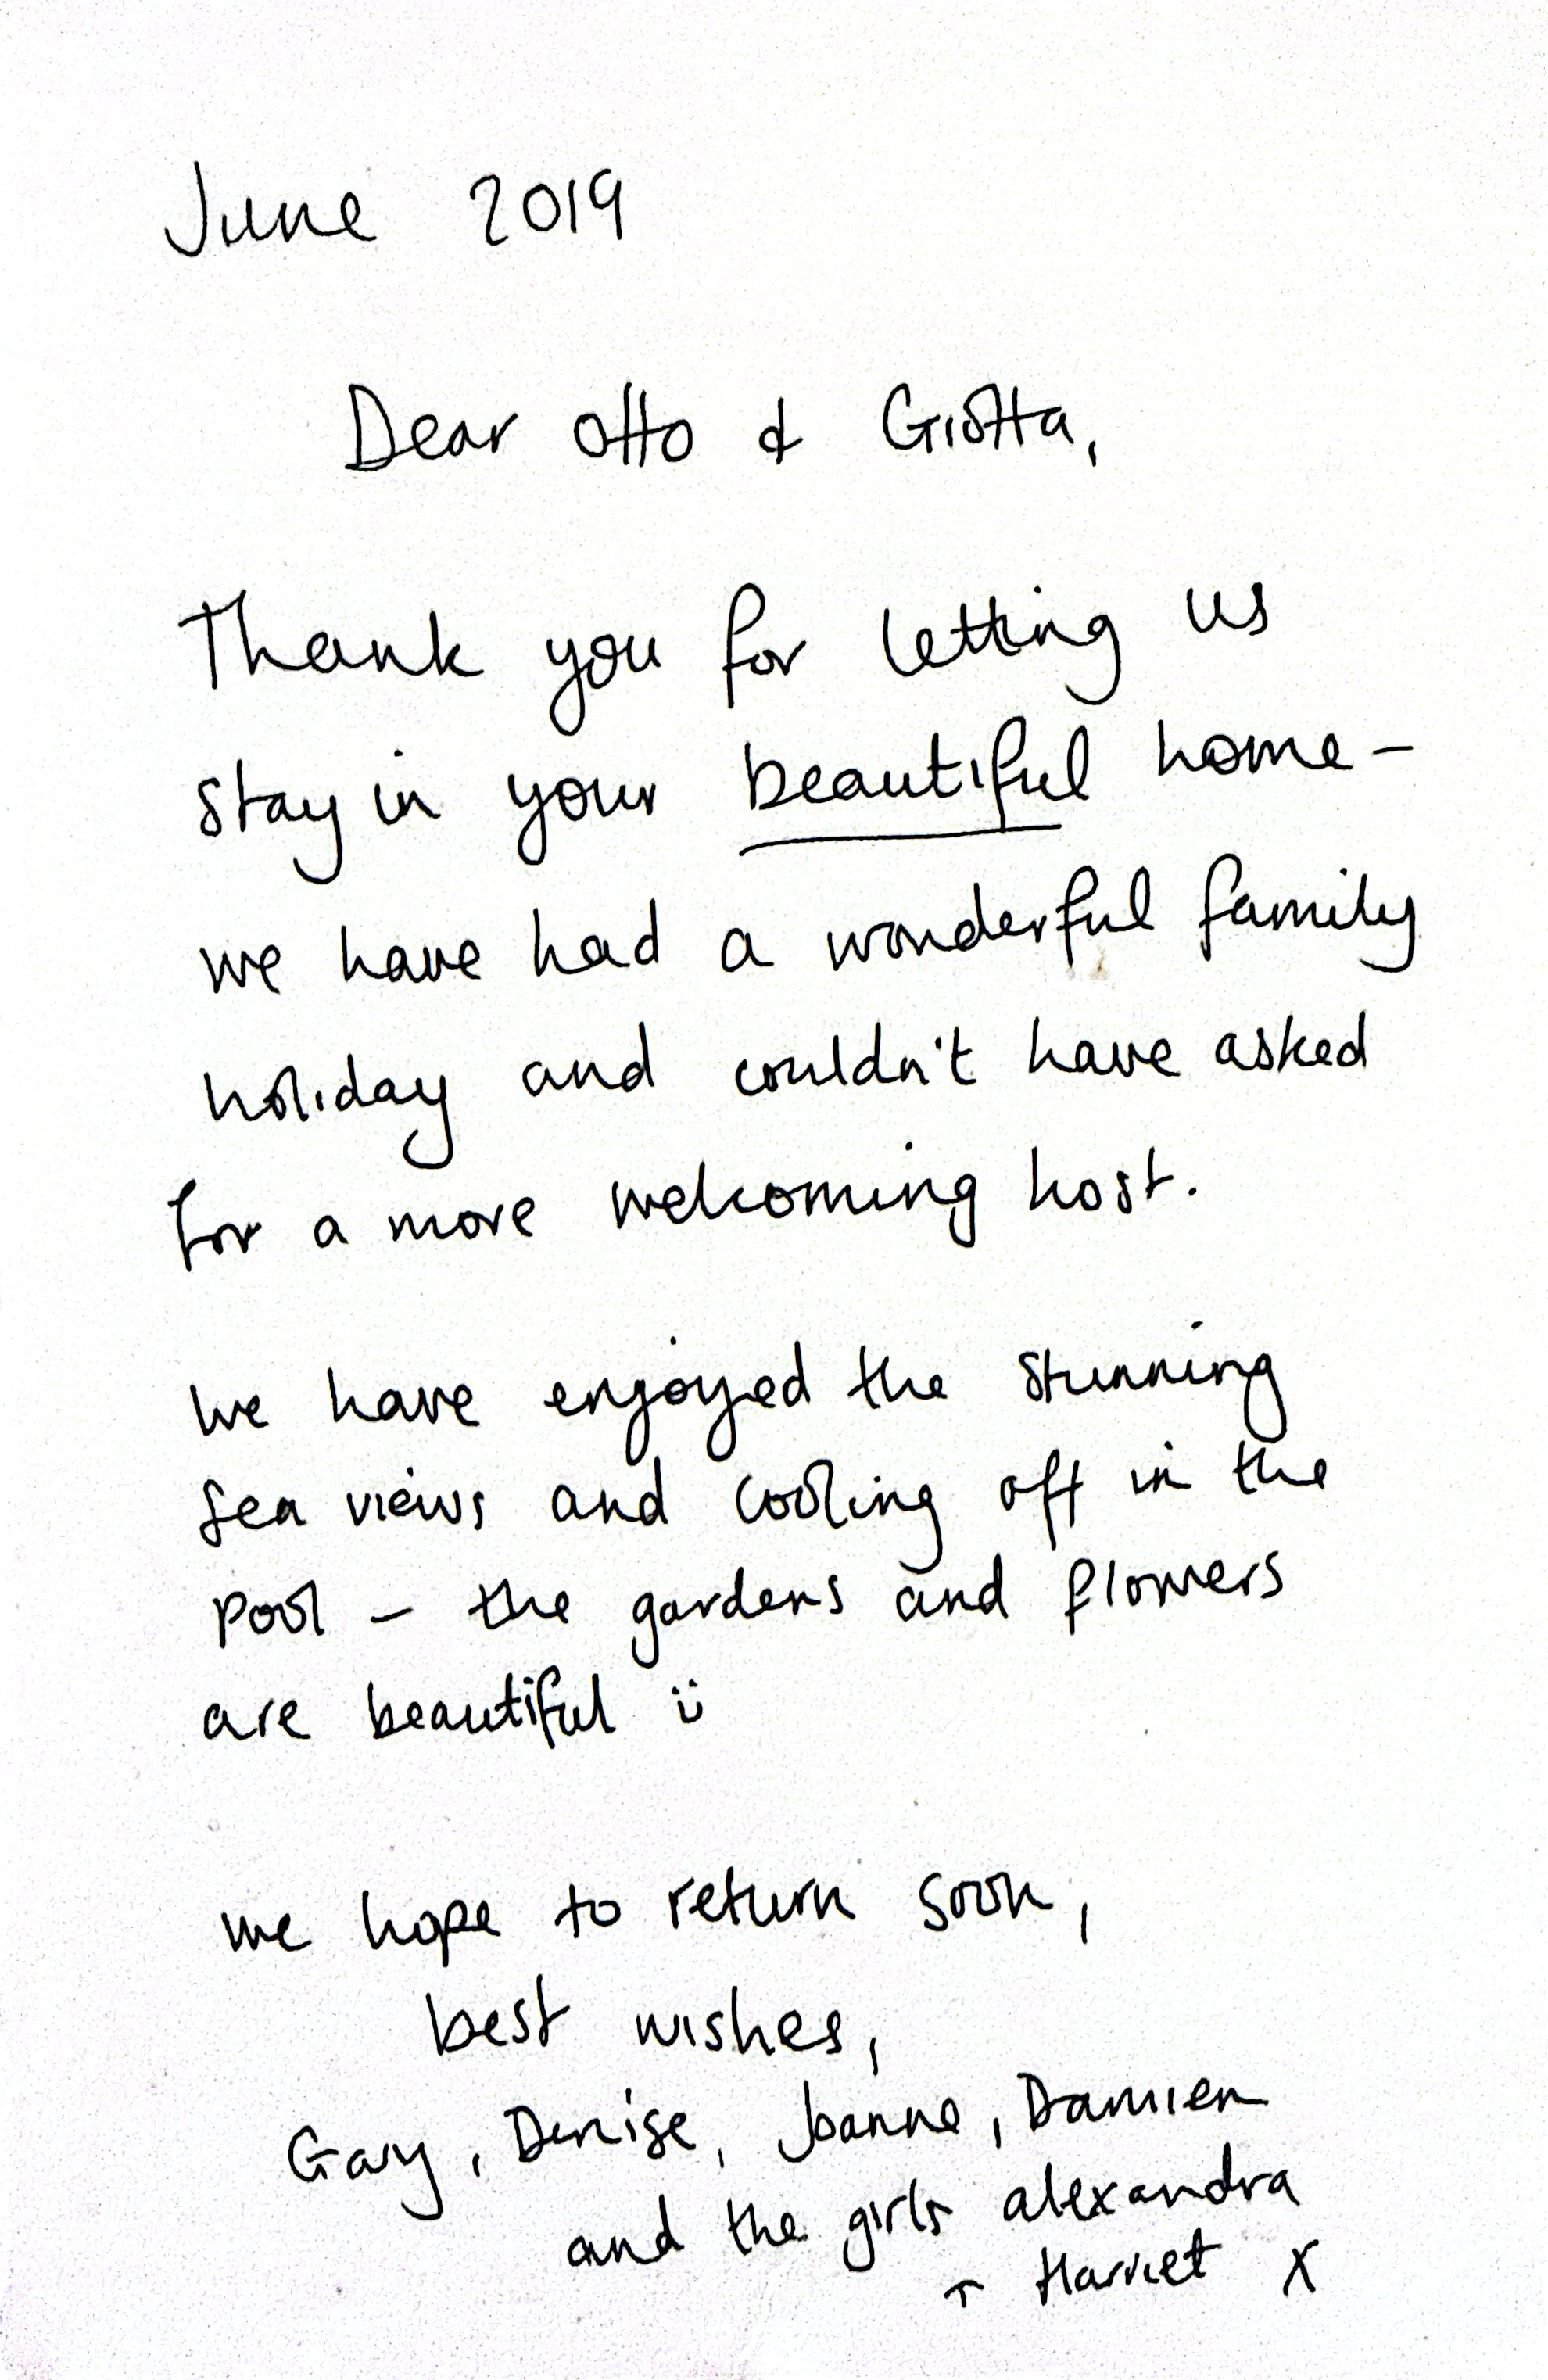 June 2019
Dear Otto & Giotta,
Thank you for letting us
stay in your beautiful home -
we have had a wonderful family
holiday and couldn't have asked
for a more welcoming host.
We have enjoyed the stunning
sea views and cooling off in the
pool - the gardens and flowers
are beautiful ü
we hope to return soon,
best wishes,
Gary, Denise, Joanne, Damien
and the girls alexandra
+ Harriet X